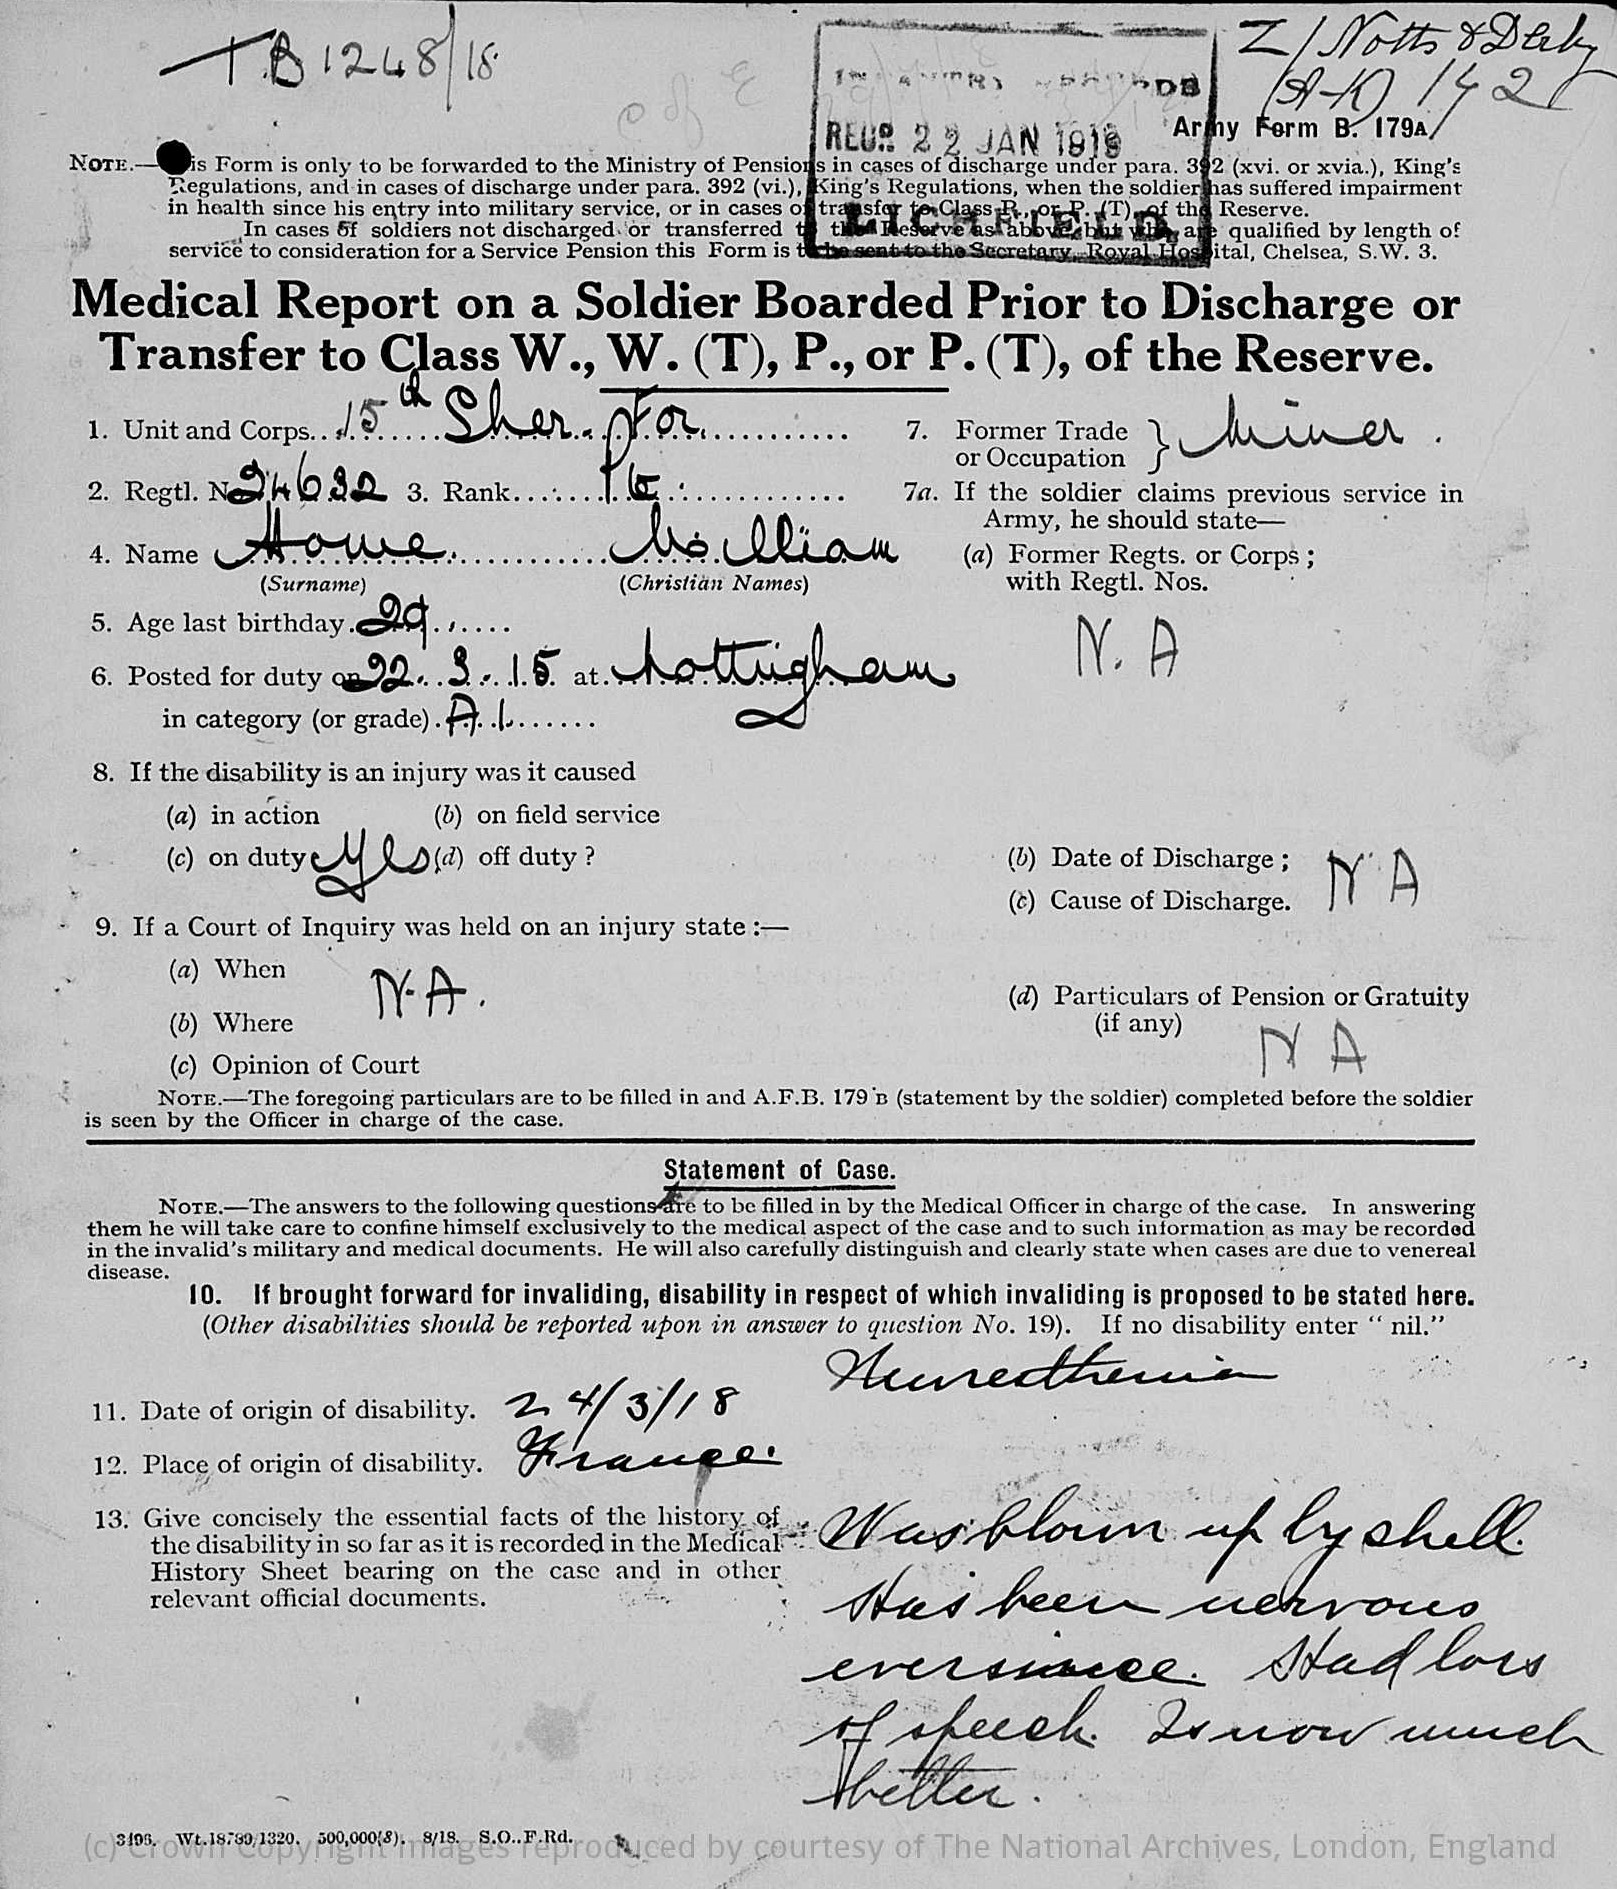 TB 1248/18
Z/Notts & Derby
(A-K) 1421
RECD. 22 JAN 1919
LICHFIELD
Army Form B. 179A
NOTE.—This Form is only to be forwarded to the Ministry of Pensions in cases of discharge under para. 392 (xvi. or xvia.), King's
Regulations, and in cases of discharge under para. 392 (vi.), King's Regulations, when the soldier has suffered impairment
in health since his entry into military service, or in cases of transfer to Class P., or P. (T), of the Reserve.
In cases of soldiers not discharged or transferred to the Reserve as above, but who are qualified by length of
service to consideration for a Service Pension this Form is to be sent to the Secretary, Royal Hospital, Chelsea, S.W. 3.
Medical Report on a Soldier Boarded Prior to Discharge or
Transfer to Class W., W. (T), P., or P. (T), of the Reserve.
1. Unit and Corps. 15th Sher. For.
2. Regtl. No 24632 3. Rank Pte
4. Name Howe William
(Surname) (Christian Names)
5. Age last birthday 29
6. Posted for duty on 22.3.15 at Nottingham
in category (or grade) A.1.
7. Former Trade or Occupation } Miner.
7a. If the soldier claims previous service in
Army, he should state—
(a) Former Regts. or Corps;
with Regtl. Nos.
N. A
8. If the disability is an injury was it caused
(a) in action (b) on field service
(c) on duty Yes (d) off duty ?
(b) Date of Discharge;
(c) Cause of Discharge.
N A
9. If a Court of Inquiry was held on an injury state :—
(a) When
N.A.
(b) Where
(c) Opinion of Court
(d) Particulars of Pension or Gratuity
(if any)
N A
NOTE.—The foregoing particulars are to be filled in and A.F.B. 179 B (statement by the soldier) completed before the soldier
is seen by the Officer in charge of the case.
Statement of Case.
NOTE.—The answers to the following questions are to be filled in by the Medical Officer in charge of the case. In answering
them he will take care to confine himself exclusively to the medical aspect of the case and to such information as may be recorded
in the invalid's military and medical documents. He will also carefully distinguish and clearly state when cases are due to venereal
disease.
10. If brought forward for invaliding, disability in respect of which invaliding is proposed to be stated here.
(Other disabilities should be reported upon in answer to question No. 19). If no disability enter " nil."
Neurasthenia
11. Date of origin of disability. 24/3/18
12. Place of origin of disability. France.
13. Give concisely the essential facts of the history of
the disability in so far as it is recorded in the Medical
History Sheet bearing on the case and in other
relevant official documents.
Was blown up by shell.
Has been nervous
ever since. Had loss
of speech. Is now much
better.
3496. Wt.18789/1320. 500,000(8). 8/18. S.O.,F.Rd.
(c) Crown Copyright Images reproduced by courtesy of The National Archives, London, England